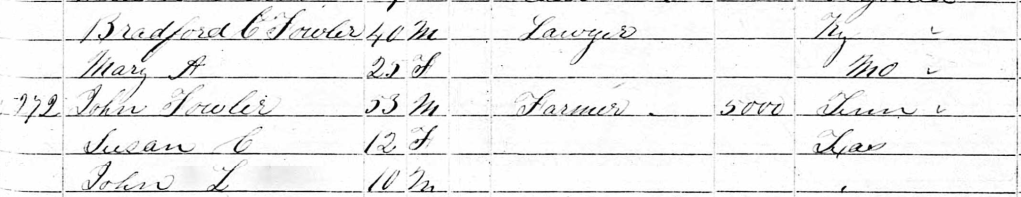 Bradford C Fowler 40 M Lawyer Ky "
Mary A 25 F Mo "
272 John Fowler 53 M Farmer 5000 Tenn "
Susan C 12 F Texas
John L 10 M "